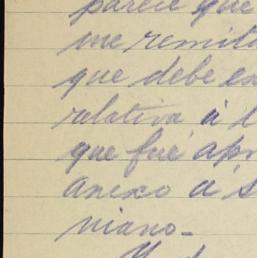 parece que
me remit
que debe ex
relativa á l
que fué apr
anexo á s
niano-